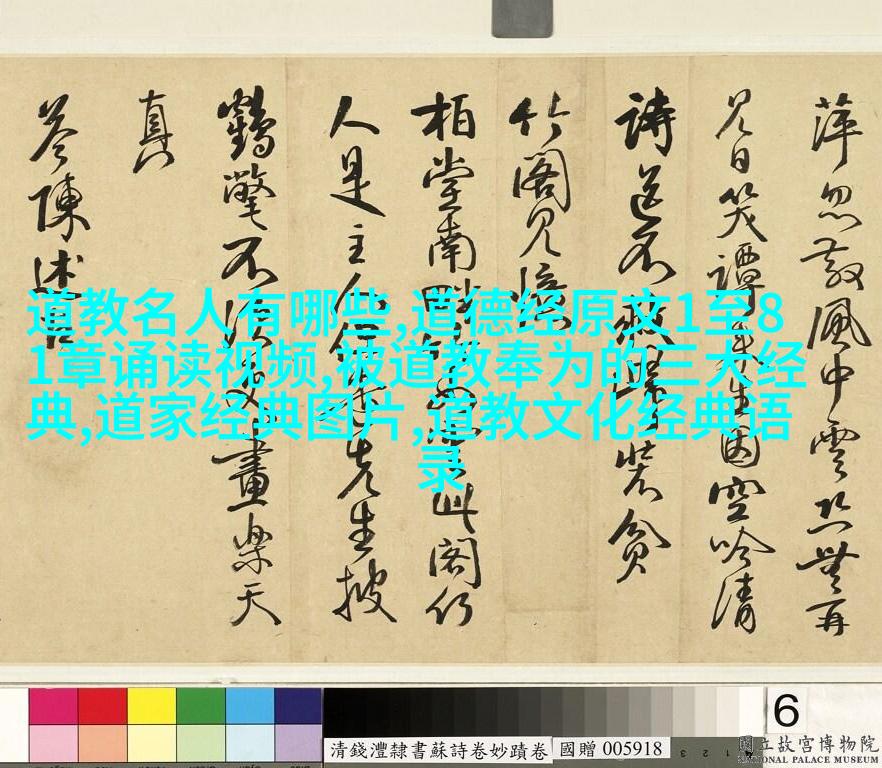 萍忽散風中雲恐無再
見日笑譚來生因空吟清
詩送不救歸裝貧
竹閣見憶
柏堂南畔竹如雲此閣何
人是主人但遣先生披
鶴氅不須更畫樂天
真
答陳述古
道教名人有哪些,道德经原文1至8
1章诵读视频,被道教奉为的三大经
典,道家经典图片,道教文化经典语
录
6
清錢灃隸書蘇詩卷妙蹟卷 國贈 005918
國立故宮博物院
NATIONAL PALACE MUSEUM